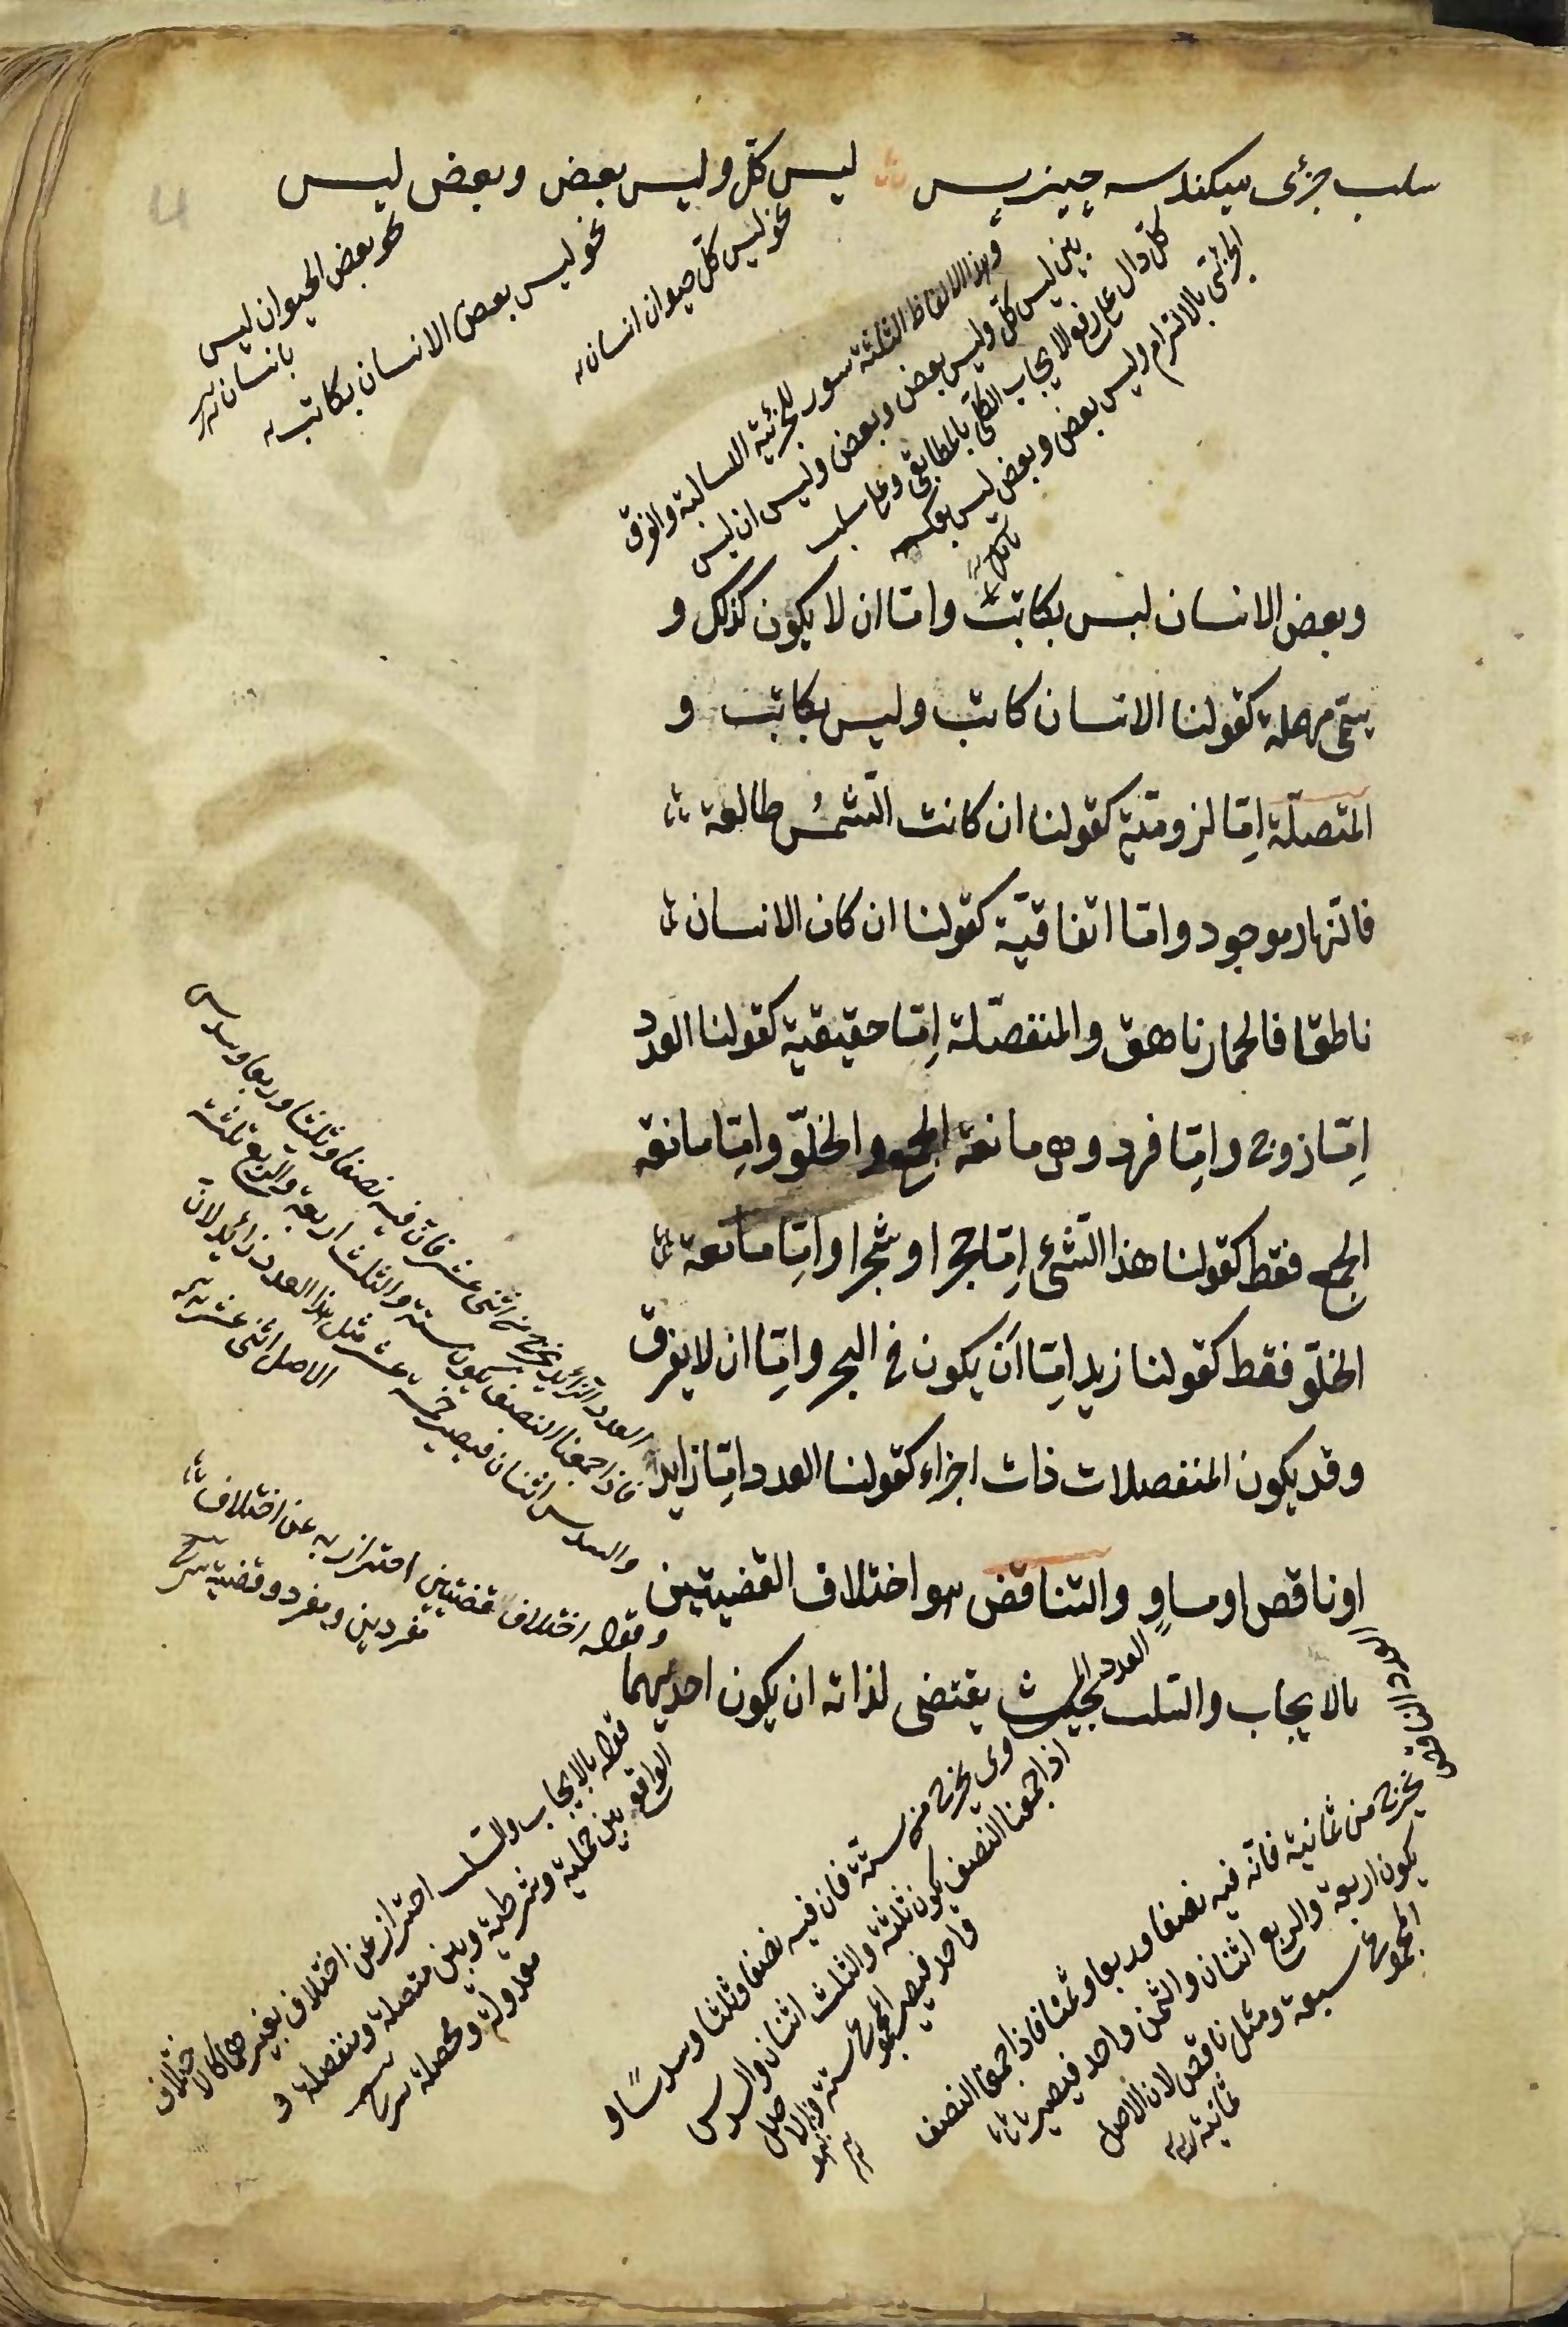 سلب جزئی میکند سه چیز پس ليس كلّ وليس بعض وبعض ليس
نحو ليس كلّ حيوان انسان
نحو ليس بعض الانسان بكاتب
نحو بعض الحيوان ليس
بانسان
وهذا الالفاظ الثلثة سور للجزئية السالبة والفرق
بين ليس كلّ وليس بعض وبعض وليس ان ليس
كلّ دال على رفع الايجاب الكلّى بالمطابقى وعلى سلب
الجزئى بالالتزام وليس بعض وبعض ليس بعكسه
وبعض الانسان ليس بكاتب وامّا ان لا يكون كذلك و
يسمّى مهملة كقولنا الانسان كاتب وليس بكاتب و
المتصلّة اِمّا لزوميّة كقولنا ان كانت الشّمسُ طالعة
فالنّهار موجود وامّا اتفاقيّة كقولنا ان كان الانسان
ناطقا فالحمار ناهق والمنفصّلة اِمّا حقيقية كقولنا العدد
اِمّا زوج واِمّا فرد وهى مانعة الجمع والخلوّ واِمّا مانعة
الجمع فقط كقولنا هذا الشّئ اِمّا حجرا وشجرا واِمّا مانعة
الخلوّ فقط كقولنا زيد اِمّا اَن يكون فى البحر واِمّا ان لا يغرق
وقد يكون المنفصلات ذات اجزاء كقولنا العدد اِمّا زايد
اوناقص اومساوٍ والتناقض هو اختلاف القضيتين
بالايجاب والسّلب بحيث يقتضى لذاته ان يكون احديهما
العدد الزائد يخرج من اثنى عشر فانّ فيه نصفا وثلثا وربعا وسدس
فاذا جمعنا النصف يكون ستة والثلث اربعة والربع ثلثة
والسدس اثنان فيصير خمسة عشر مثل هذا العدد زائد لان
الاصل اثنى عشر
وقوله اختلاف قضيتين احتراز به عن اختلاف
مفردين ومفرد وقضية شرح
قوله بالايجاب والسّلب احتراز عن اختلاف بغيرهما كالاختلاف
الواقع بين حملية وشرطية وبين متصلة ومنفصلة و
معدولة ومحصلة شرح
العدد المساوى يخرج من ستّة فان فيه نصفا وثلثا وسدسًا و
اذا جمعنا النصف يكون ثلثة والثلث اثنان والسدس
واحد فيصير المجموع ستة
العدد الناقص يخرج من ثمانية فانّه فيه نصفا وربعا وثمنا فاذا جمعنا النصف
يكون اربعة والربع اثنان والثمن واحد فيصير
المجموع سبعة ومثل ناقص لان الاصل
ثمانية